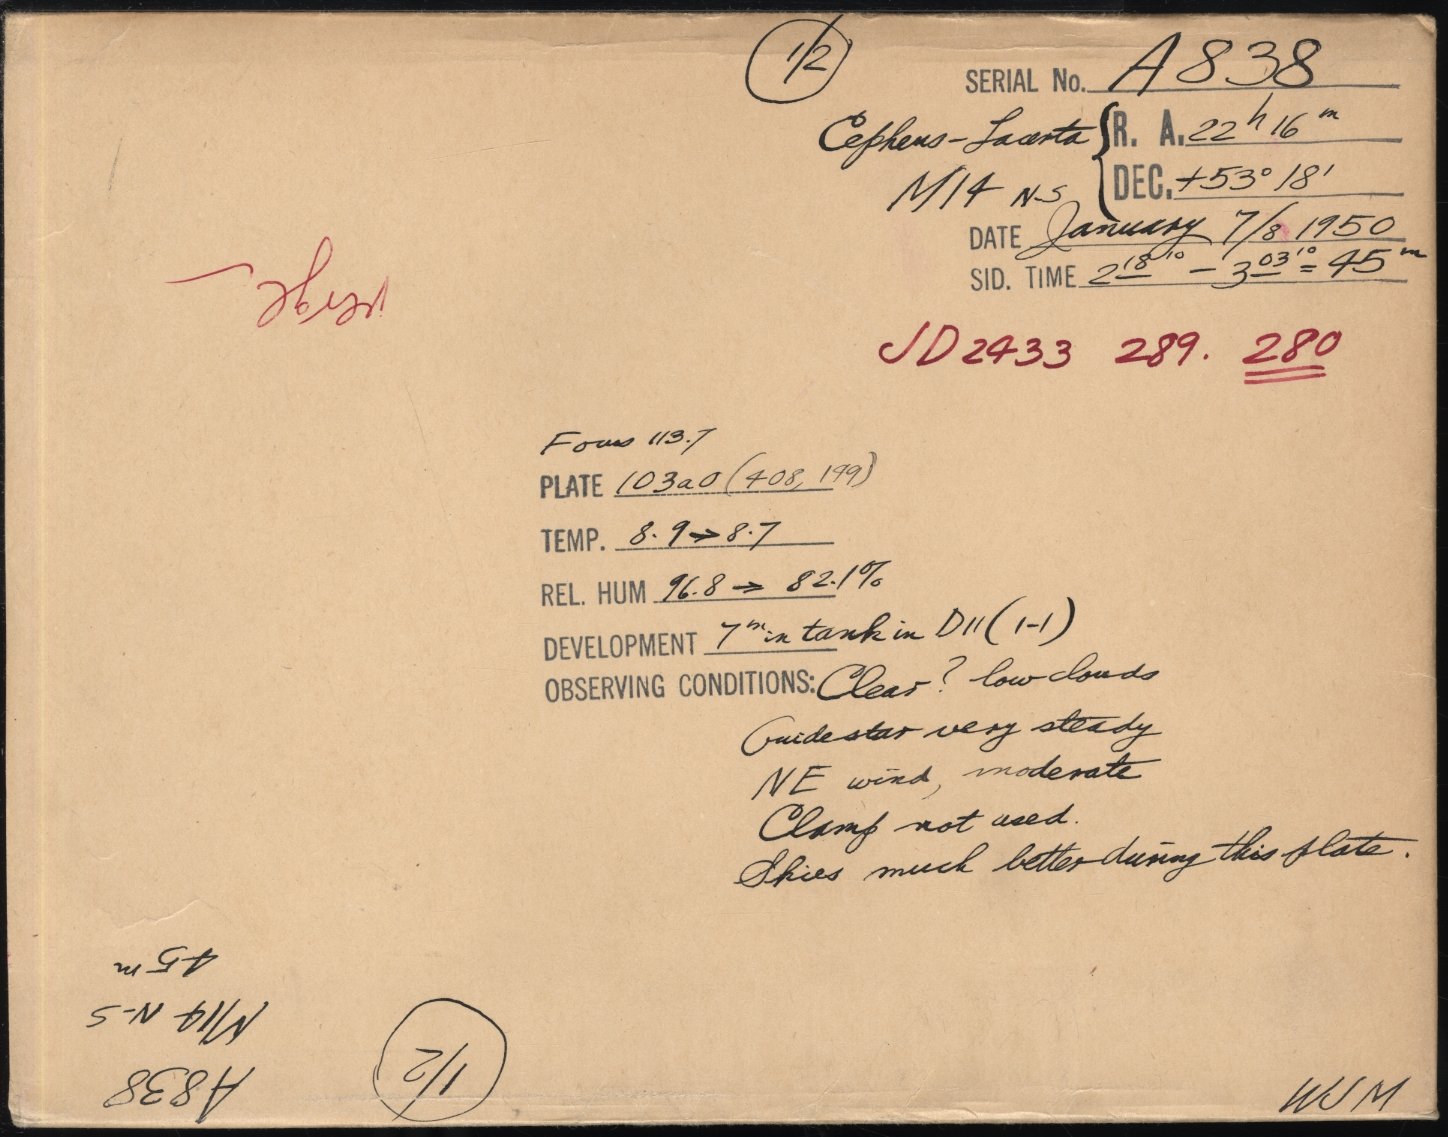 1/2
SERIAL No. A838
Cepheus-Lacerta { R. A. 22h 16m
M14 N-S DEC. +53° 18'
DATE January 7/8 1950
SID. TIME 2 18 10 - 3 03 10 = 45m
JD 2433 289. 280
Focus 113.7
PLATE 103aO (408, 199)
TEMP. 8.9 → 8.7
REL. HUM 96.8 → 82.1%
DEVELOPMENT 7m in tank in D11 (1-1)
OBSERVING CONDITIONS: Clear? low clouds
Guidestar very steady
NE wind, moderate
Clamp not used.
Skies much better during this plate.
WJM
A838
M14 N-S
45m
1/2